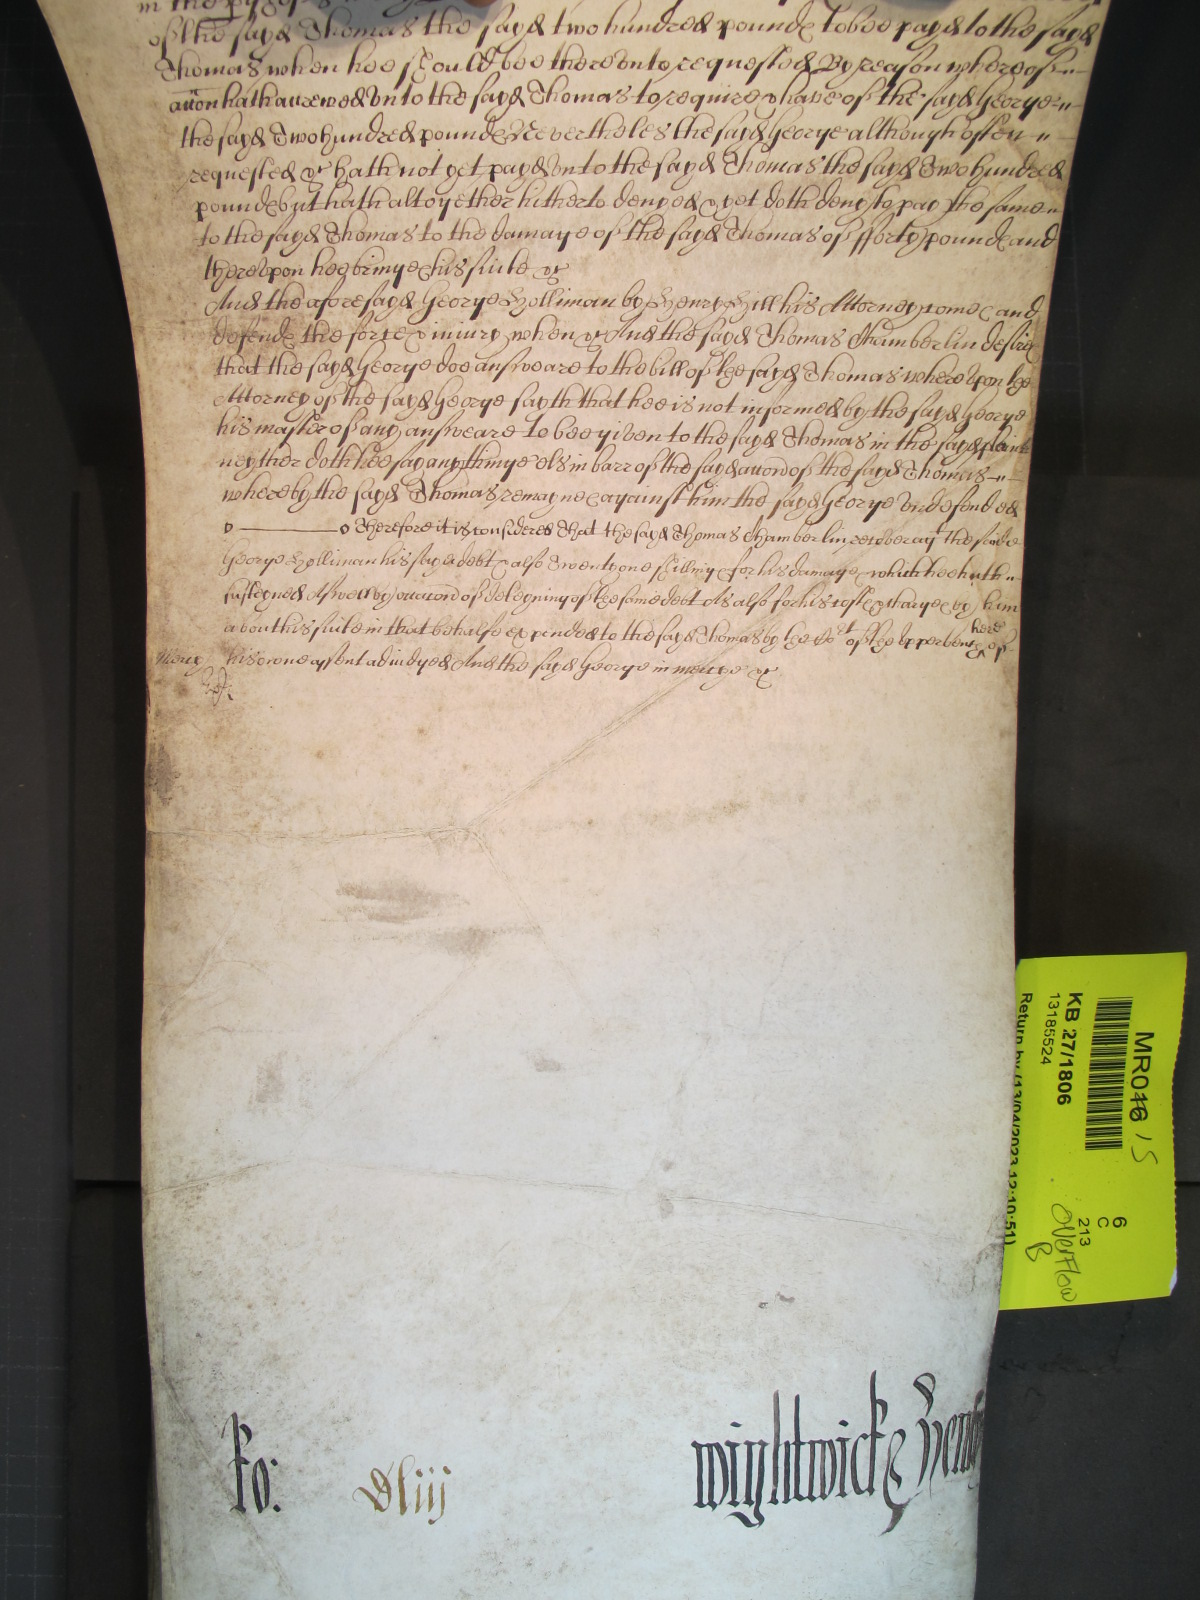 in the
of the sayd Thomas the sayd two hundred pound to bee payd to the sayd
Thomas when hee should bee therevnto requested By reason whereof
accon hath accrewed vnto the sayd Thomas to require & have of the sayd George
the sayd Two hundred pound Neverthelesse the sayd George although often
requested &c hath not yet payd vnto the sayd Thomas the sayd Two hundred
pound but hath altogether hitherto denyed & yet doth deny to pay the same
to the sayd Thomas to the damage of the sayd Thomas of fforty pound and
therevpon hee bringe his suite &c
And the aforesayd George Holliman by Henry Hill his Attorney come and
defende the force & iniury when &c And the sayd Thomas Chamberlin desire
that the sayd George doe answeare to the bill of the sayd Thomas wherevpon the
Attorney of the sayd George sayth that hee is not informed by the sayd George
his master of any answeare to bee given to the sayd Thomas in the sayd plaint
neyther doth hee say any thinge els in barr of the sayd accon of the sayd Thomas
whereby the sayd Thomas remayne against him the sayd George vndefended
Therefore it is considered That the sayd Thomas Chamberlin recover agt the sayd
George Holliman his sayd debt & also Twenty one shilling for his damage which hee hath
susteyned Aswell by occacon of deteyning of the same debt As also for his coste & charge by him
about his suite in that behalfe expended to the sayd Thomas by the Cort of the Upper bench here of
Mercy his owne assent adiudged And the sayd George in mercye &c
Ro: Dliij wightwick & Henly
MR016 15
KB 27/1806
13185524
Return by (13/04/2023 12:10:51)
6
C
213
Overflow
B